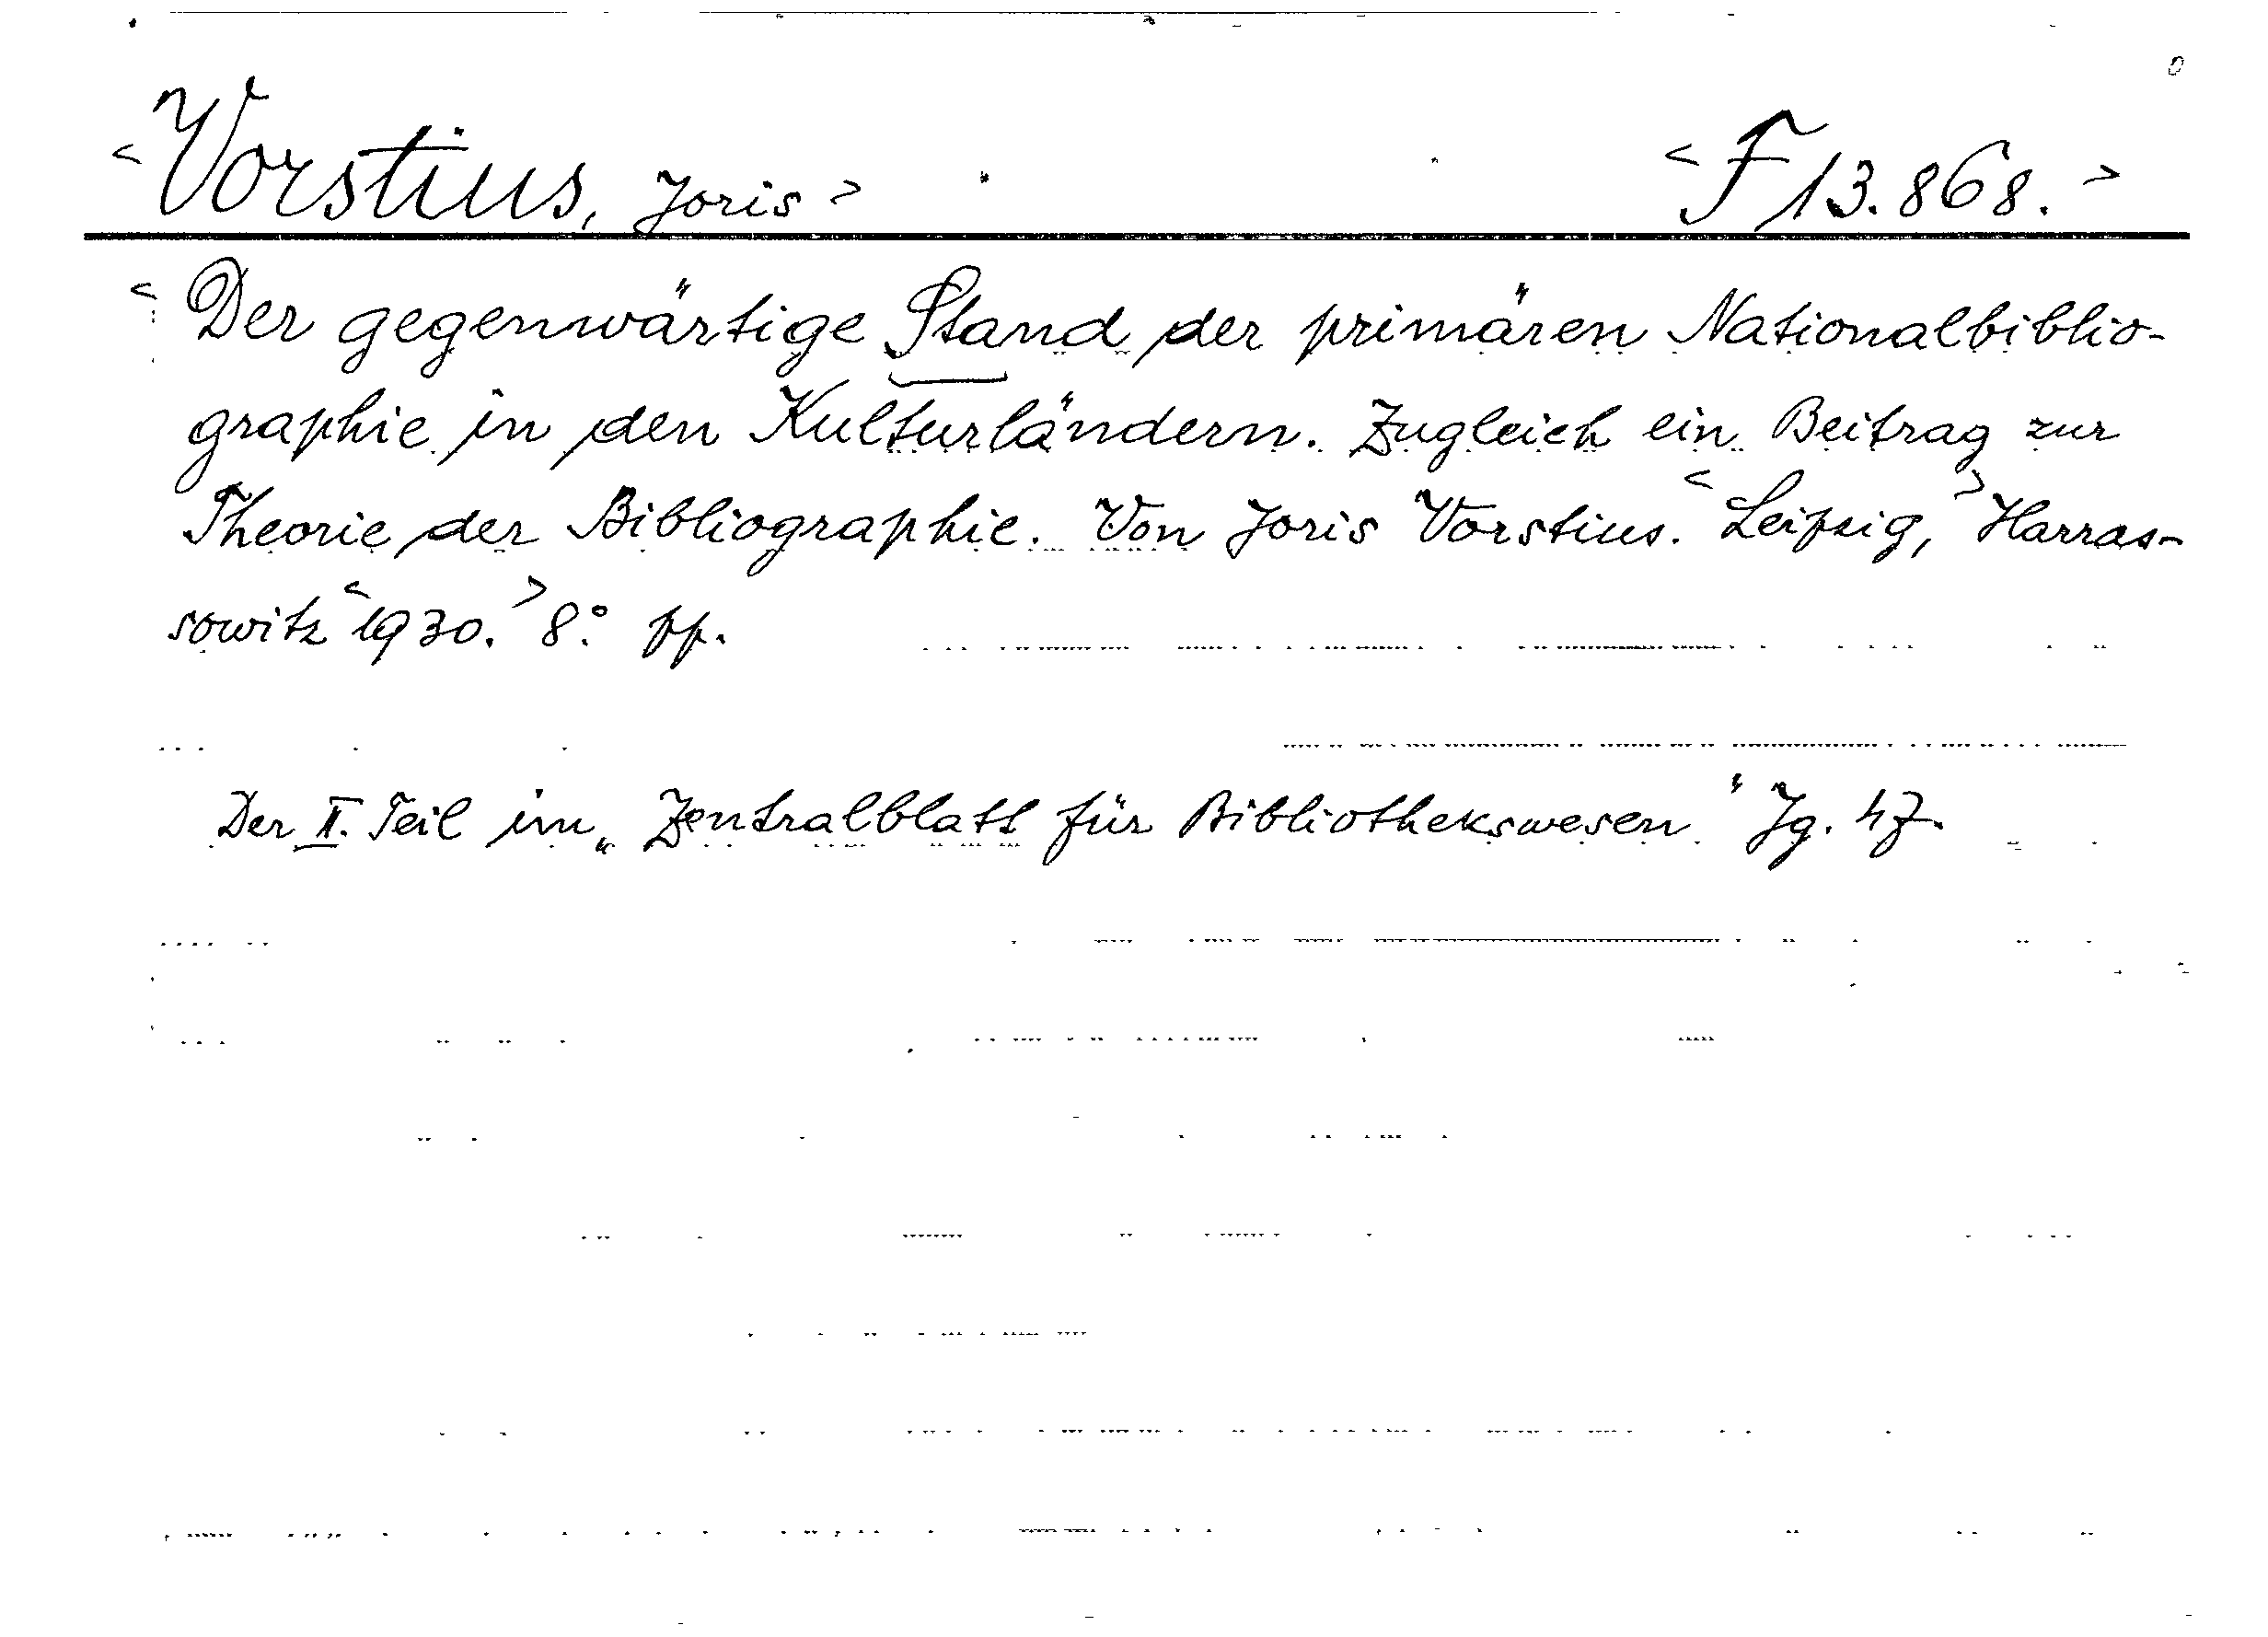 <Vorstius, Joris> <F 13.868.>
<Der gegenwärtige Stand der primären Nationalbiblio-
graphie in den Kulturländern. Zugleich ein Beitrag zur
Theorie der Bibliographie. Von Joris Vorstius. <Leipzig,> Harras-
sowitz <1930.> 8.° pp.
Der II. Teil im „Zentralblatt für Bibliothekswesen" Jg. 47.